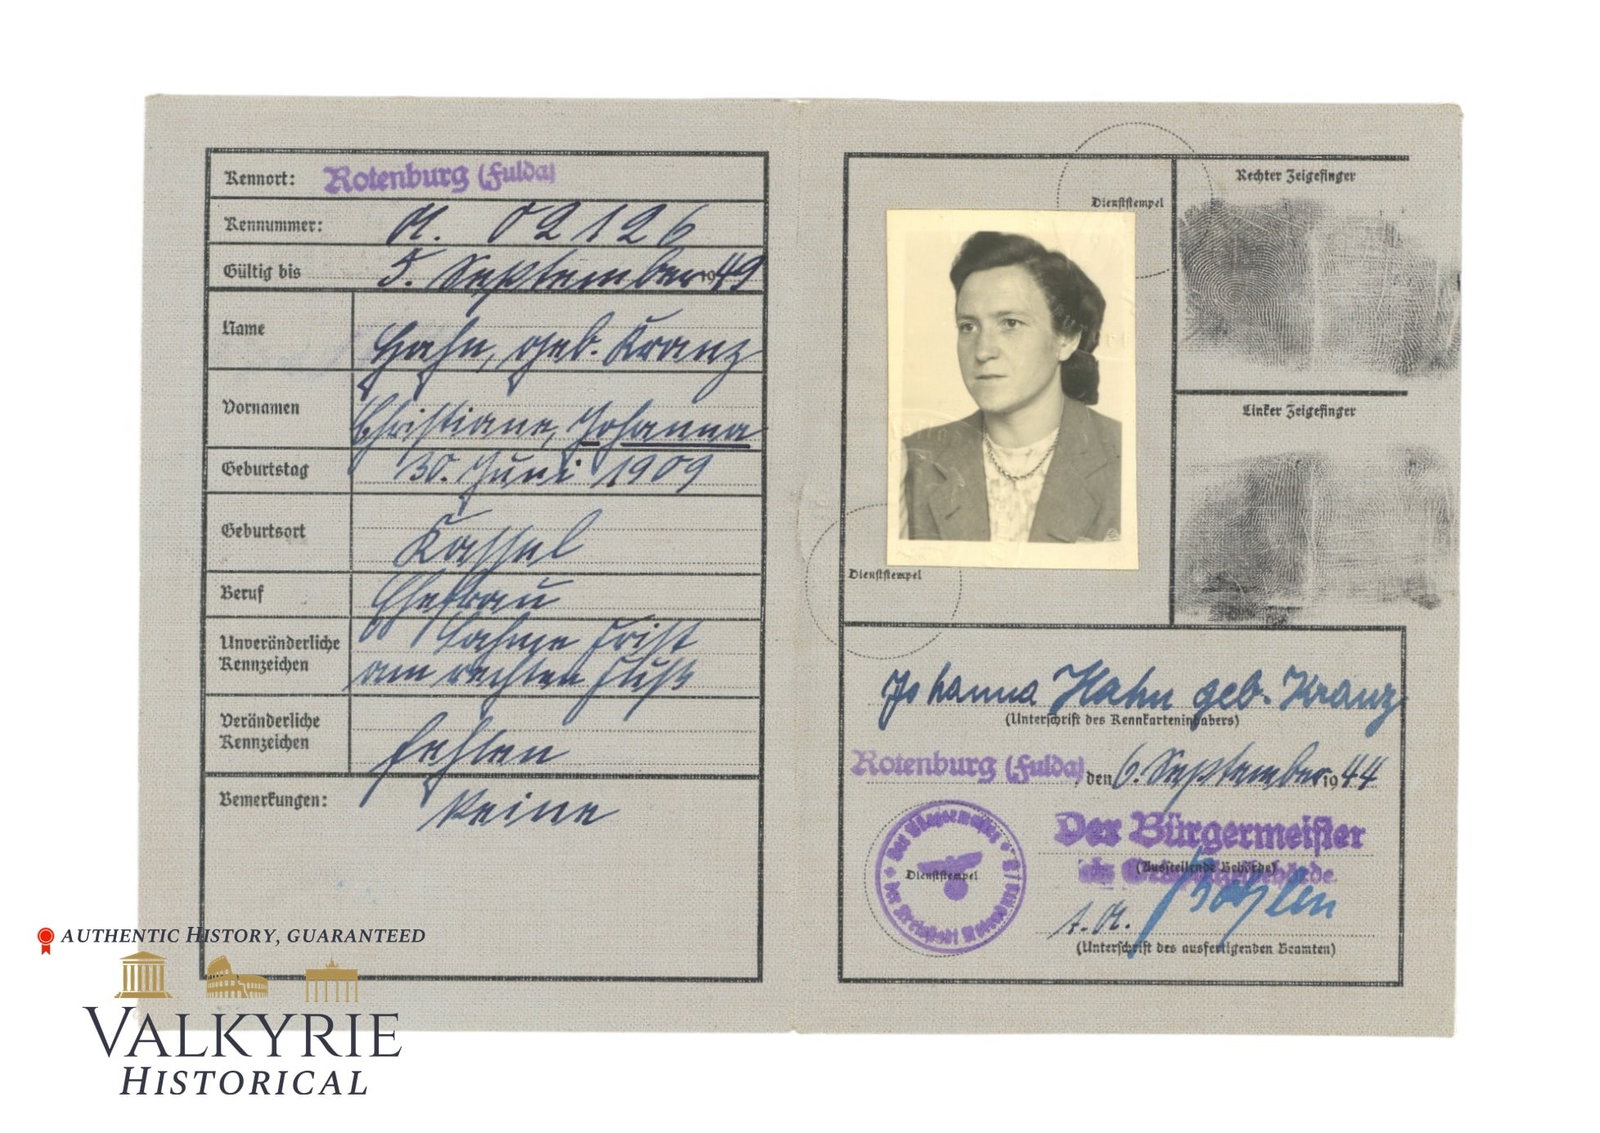 Kennort: Rotenburg (Fulda)
Kennummer: A. 02126
Gültig bis 5. September 1949
Name Hahn, geb. Kranz
Vornamen Christiane, Johanna
Geburtstag 30. Juni 1909
Geburtsort Kassel
Beruf Ehefrau
Unveränderliche
Kennzeichen
am rechten Fuß
Veränderliche
Kennzeichen
fehlen
Bemerkungen: Keine
Dienststempel
Rechter Zeigefinger
Linker Zeigefinger
Dienststempel
Johanna Hahn geb. Kranz
(Unterschrift des Kennkarteninhabers)
Rotenburg (Fulda), den 6. September 1944
Der Bürgermeister
(Ausstellende Behörde)
Der Bürgermeister
Dienststempel
(Unterschrift des ausfertigenden Beamten)
AUTHENTIC HISTORY, GUARANTEED
VALKYRIE
HISTORICAL